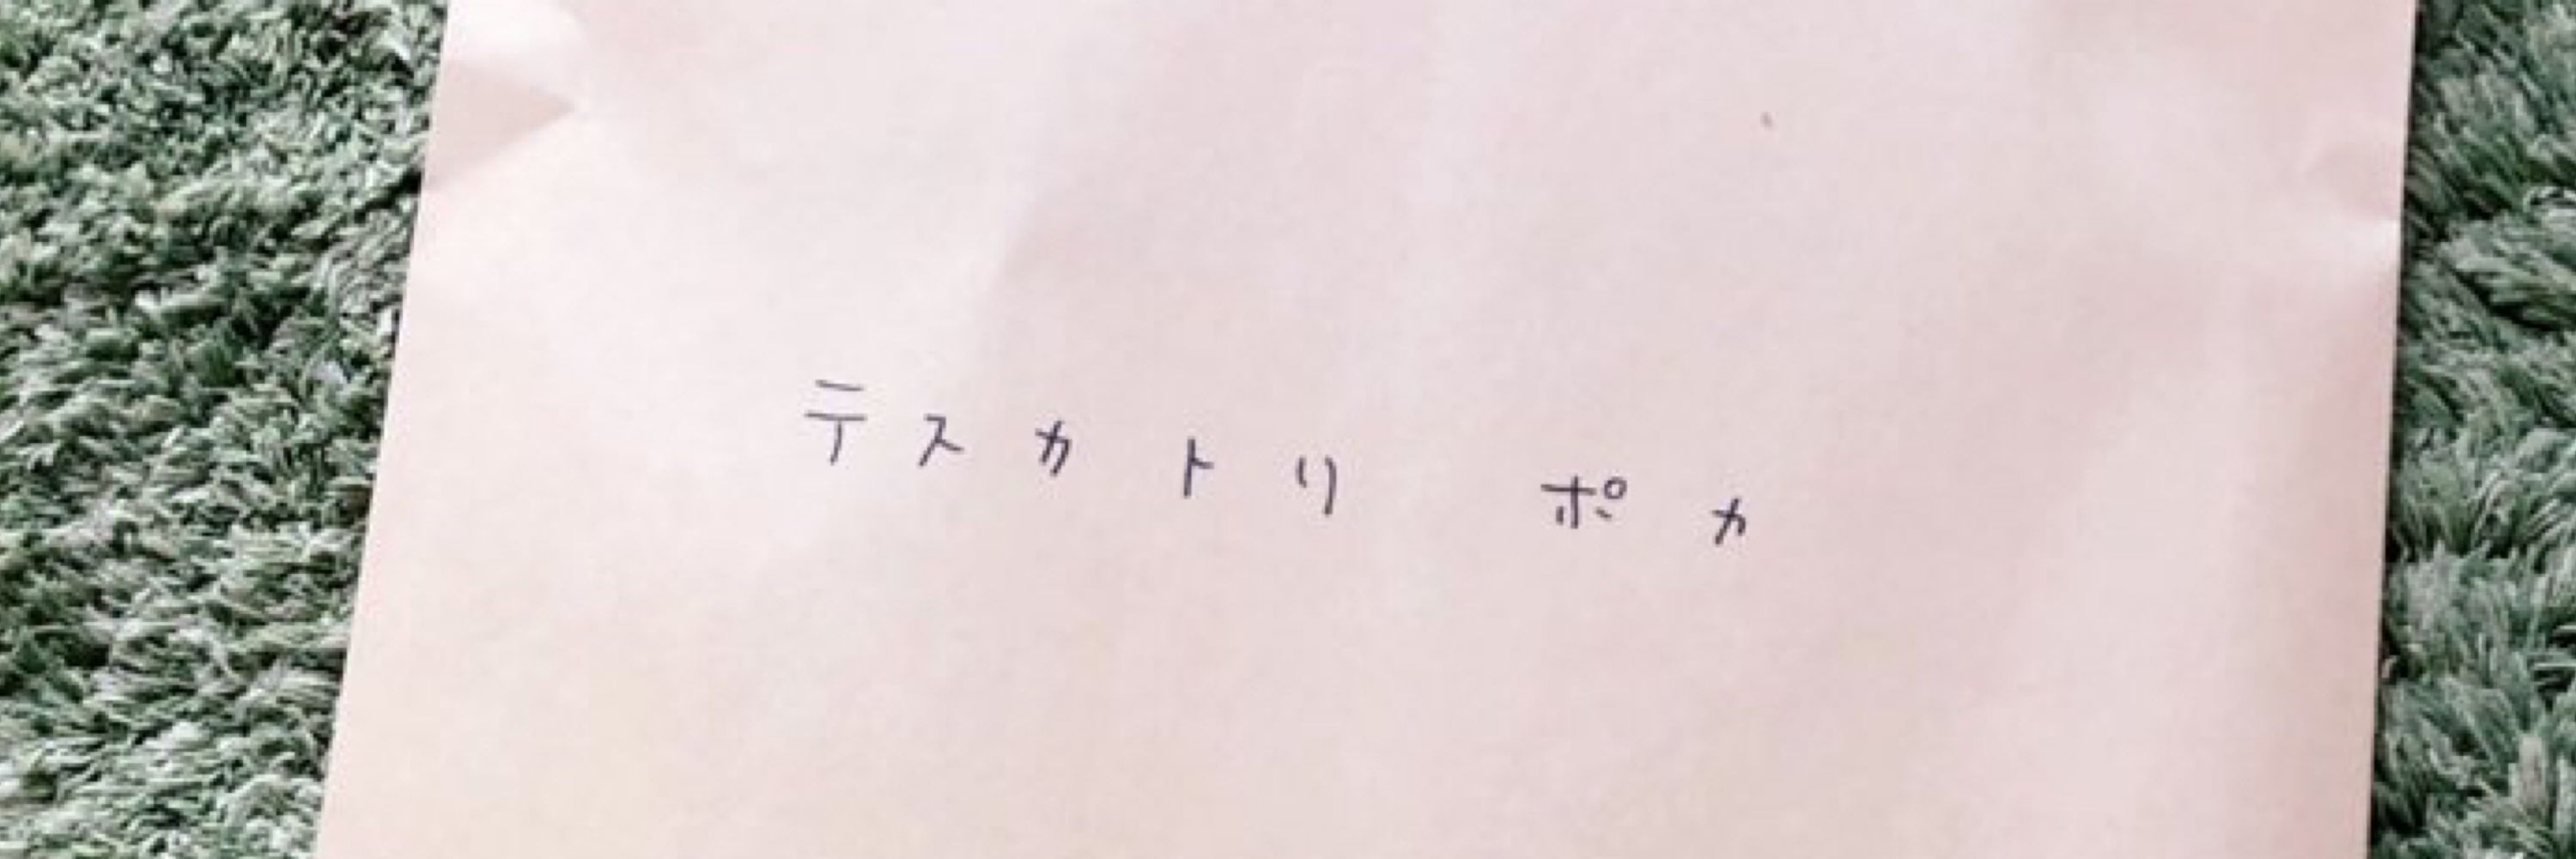 テスカトリポカ